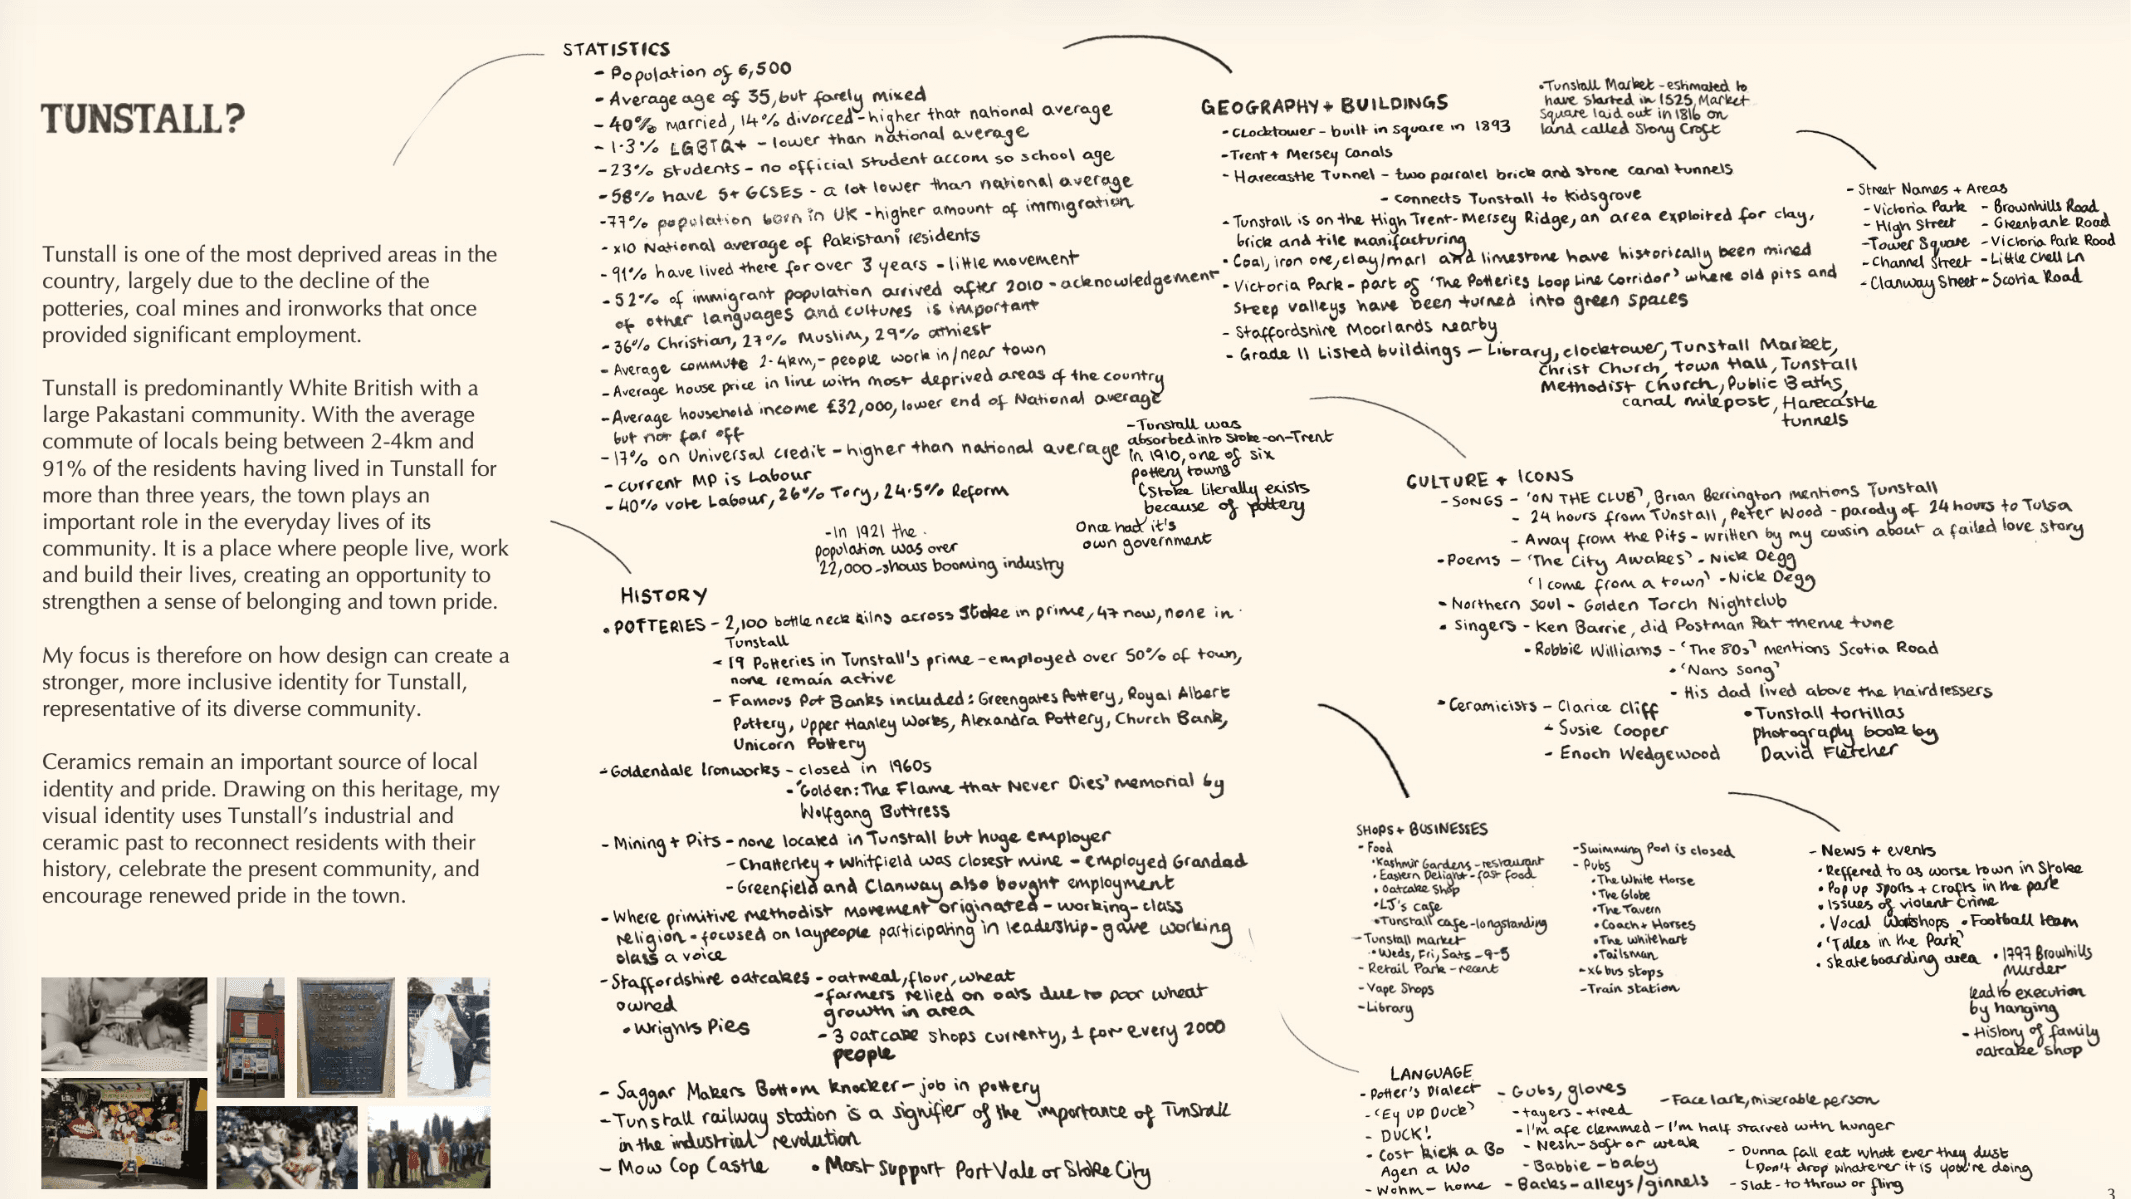 TUNSTALL?
Tunstall is one of the most deprived areas in the
country, largely due to the decline of the
potteries, coal mines and ironworks that once
provided significant employment.
Tunstall is predominantly White British with a
large Pakastani community. With the average
commute of locals being between 2-4km and
91% of the residents having lived in Tunstall for
more than three years, the town plays an
important role in the everyday lives of its
community. It is a place where people live, work
and build their lives, creating an opportunity to
strengthen a sense of belonging and town pride.
My focus is therefore on how design can create a
stronger, more inclusive identity for Tunstall,
representative of its diverse community.
Ceramics remain an important source of local
identity and pride. Drawing on this heritage, my
visual identity uses Tunstall's industrial and
ceramic past to reconnect residents with their
history, celebrate the present community, and
encourage renewed pride in the town.
STATISTICS
- Population of 6,500
- Average age of 35, but farely mixed
- 40% married, 14% divorced - higher that national average
- 1.3% LGBTQ+ - lower than national average
- 23% students - no official student accom so school age
- 58% have 5+ GCSEs - a lot lower than national average
- 77% population born in UK - higher amount of immigration
- x10 National average of Pakistani residents
- 91% have lived there for over 3 years - little movement
- 52% of immigrant population arrived after 2010 - acknowledgement
of other languages and cultures is important
- 36% Christian, 27% Muslim, 29% athiest
- Average commute 2-4km, - people work in/near town
- Average house price in line with most deprived areas of the country
- Average household income £32,000, lower end of National average
but not far off
- 17% on Universal credit - higher than national average
- current MP is Labour
- 40% vote Labour, 26% Tory, 24.5% Reform
- In 1921 the
population was over
22,000 - shows booming industry
- Tunstall was
absorbed into Stoke-on-Trent
in 1910, one of six
pottery towns
(Stoke literally exists
because of pottery
Once had it's
own government
HISTORY
• POTTERIES - 2,100 bottle neck kilns across Stoke in prime, 47 now, none in
Tunstall
- 19 Potteries in Tunstall's prime - employed over 50% of town,
none remain active
- Famous Pot Banks included: Greengates Pottery, Royal Albert
Pottery, Upper Hanley Works, Alexandra Pottery, Church Bank,
Unicorn Pottery
- Goldendale Ironworks - closed in 1960s
- 'Golden: The Flame that Never Dies' memorial by
Wolfgang Buttress
- Mining + Pits - none located in Tunstall but huge employer
- Chatterley + Whitfield was closest mine - employed Grandad
- Greenfield and Clanway also bought employment
- Where primitive methodist movement originated - working-class
religion - focused on laypeople participating in leadership - gave working
class a voice
- Staffordshire oatcakes - oatmeal, flour, wheat
owned
- farmers relied on oats due to poor wheat
growth in area
• Wrights Pies
- 3 oatcake shops currenty, 1 for every 2000
people
- Saggar Makers Bottom knocker - job in pottery
- Tunstall railway station is a signifier of the importance of Tunstall
in the industrial revolution
- Mow Cop Castle
• Most support Port Vale or Stoke City
GEOGRAPHY + BUILDINGS
• Clocktower - built in square in 1893
• Tunstall Market - eshimated to
have started in 1525, Market
Square laid out in 1816 on
land called Stony Croft
- Trent + Mersey Canals
- Harecastle Tunnel - two parralel brick and stone canal tunnels
- connects Tunstall to Kidsgrove
- Tunstall is on the High Trent-Mersey Ridge, an area exploited for clay,
brick and tile manifacturing
• Coal, iron ore, clay/marl and limestone have historically been mined
- Victoria Park - part of 'The Potteries Loop Line Corridor' where old pits and
steep valleys have been turned into green spaces
- Staffordshire Moorlands nearby
- Grade II Listed buildings - Library, clocktower, Tunstall Market,
Christ Church, town Hall, Tunstall
Methodist Church, Public Baths,
canal milepost, Harecastle
tunnels
- Street Names + Areas
- Victoria Park
- High Street
- Tower Square
- Channel Street
- Clanway Street
- Brownhills Road
- Greenbank Road
- Victoria Park Road
- Little Chell Ln
- Scotia Road
CULTURE + ICONS
- SONGS - 'ON THE CLUB', Brian Berrington mentions Tunstall
- 24 hours from Tunstall, Peter Wood - parody of 24 hours to Tulsa
- Away from the Pits - written by my cousin about a failed love story
- Poems - 'The City Awakes' - Nick Degg
'I come from a town' - Nick Degg
• Northern Soul - Golden Torch Nightclub
• Singers - Ken Barrie, did Postman Pat theme tune
• Robbie Williams - 'The 80s' mentions Scotia Road
• 'Nans Song'
- His dad lived above the hairdressers
• Ceramicists - Clarice Cliff
- Susie Cooper
- Enoch Wedgewood
• Tunstall tortillas
photography book by
David Fletcher
SHOPS + BUSINESSES
- Food
• Kashmir Gardens - restaurant
• Eastern Delight - fast food
• Oatcake Shop
• LJ's cafe
• Tunstall cafe - longstanding
- Tunstall market
• Weds, Fri, Sats - 9-5
- Retail Park - recent
- Vape Shops
- Library
- Swimming Pool is closed
- Pubs
• The White Horse
• The Globe
• The Tavern
• Coach + Horses
• The whitehart
• Tailsman
- x6 bus stops
- Train station
- News + events
• Reffered to as worse town in Stoke
• Pop up sports + crafts in the park
• Issues of violent crime
• Vocal Workshops
• Football team
• 'Tales in the Park'
• Skateboarding area
• 1797 Brownhills
murder
lead to execution
by hanging
- History of family
oatcake shop
LANGUAGE
- Potter's Dialect
- 'Ey Up Duck'
- DUCK!
• Cost kick a Bo
Agen a Wo
- Wohm - home
- Gubs, gloves
- tayers - tired
- I'm afe clemmed - I'm half starved with hunger
- Nesh - soft or weak
- Babbie - baby
- Backs - alleys/ginnels
- Face lark, miserable person
- Dunna fall eat whatt ever they dust
Don't drop whatever it is you're doing
- Slat - to throw or fling
3